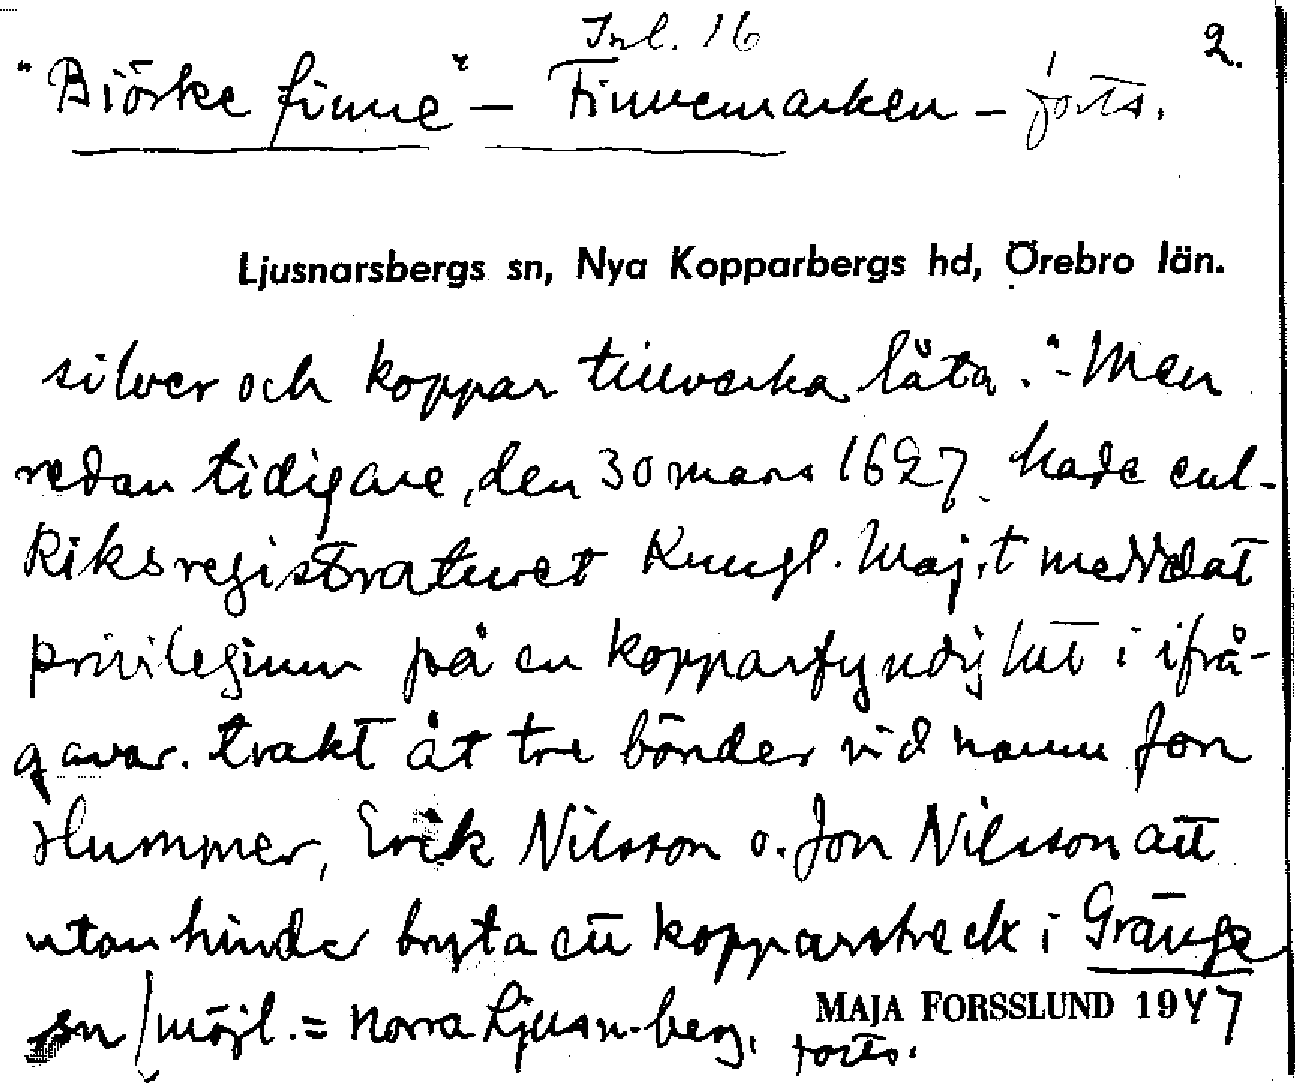 Inl. 16
2.
"Biörke finne" - Finnemarken - forts.
Ljusnarsbergs sn, Nya Kopparbergs hd, Örebro län.
silver och koppar tillverka låta." - Men
redan tidigare, den 30 mars 1627 hade enl-
Riksregistraturet Kungl. Maj:t meddelat
privilegium på en kopparfyndighet i ifrå-
gavar. trakt åt tre bönder vid namn Jon
Hummer, Erik Nilsson o. Jon Nilsson att
utan hinder bryta ett kopparstreck i Gränge
sn (möjl. = Norra Ljusn-berg,
MAJA FORSSLUND 1947
forts.